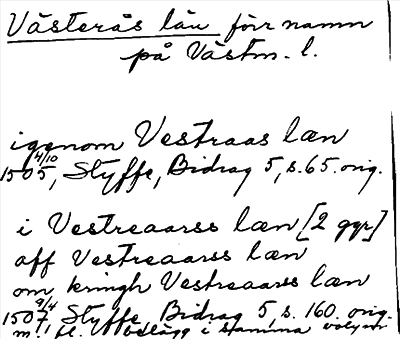 Västerås län förr namn
på Västm. l.
iggnom Vestraas læn
1505 4/10, Styffe, Bidrag 5, s. 65. orig.
i Vestreaarss læn [2 ggr]
aff Vestreaarss læn
om kringh Vestreaarss læn
1507 9/4, Styffe, Bidrag 5, s. 160. orig.
m. fl. i samma volym